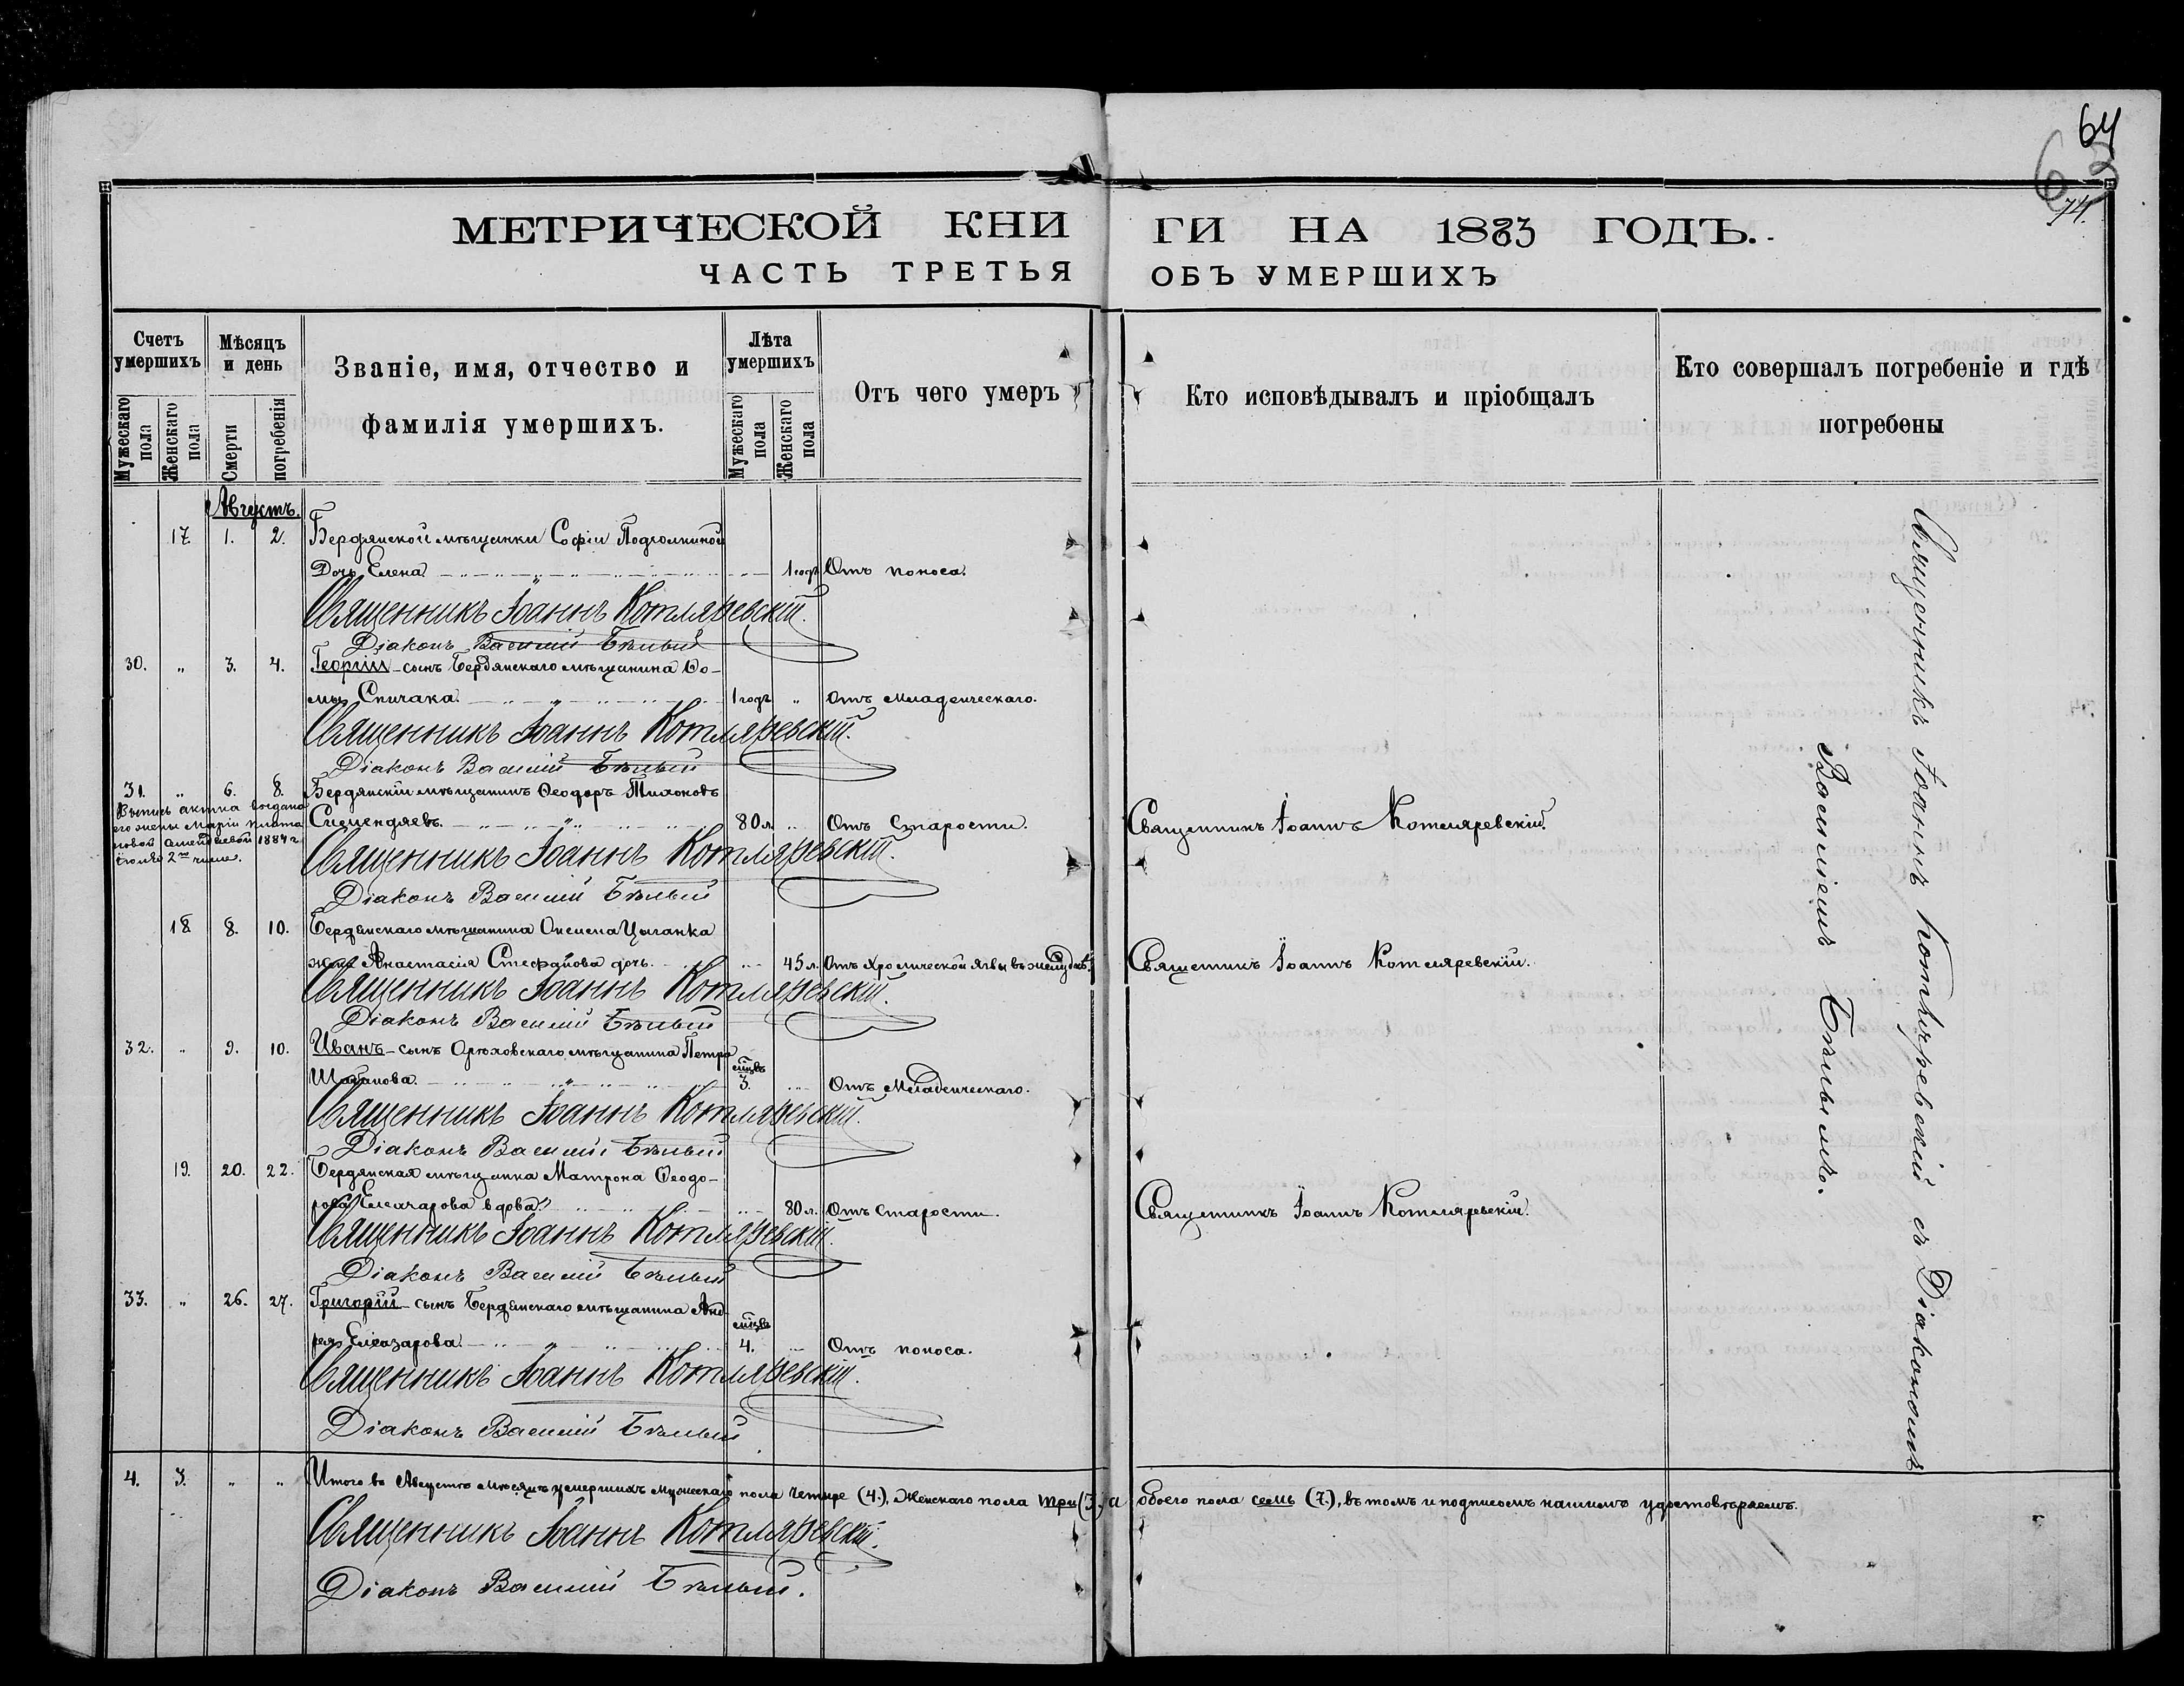 64
74.
МЕТРИЧЕСКОЙ КНИГИ НА 1883 ГОДЪ.
ЧАСТЬ ТРЕТЬЯ ОБЪ УМЕРШИХЪ
Счетъ умершихъ
Мужескаго пола
Женскаго пола
Мѣсяцъ и день
Смерти
погребенія
Званіе, имя, отчество и
фамилія умершихъ.
Лѣта умершихъ
Мужескаго пола
Женскаго пола
Отъ чего умеръ
Кто исповѣдывалъ и пріобщалъ
Кто совершалъ погребеніе и гдѣ
погребены
Августъ.
17. 1. 2. Бердянской мѣщанки Софіи
Дочь Елена. 1 годъ Отъ поноса.
Священникъ Іоаннъ Котляревскій.
Діаконъ Василій Бѣлый
30. " 3. 4. Георгій – сынъ Бердянскаго мѣщанина Ѳо-
мы Спичака. 1 годъ " Отъ младенческаго.
Священникъ Іоаннъ Котляревскій.
Діаконъ Василій Бѣлый
31. " 6. 8. Бердянскій мѣщанинъ Ѳеодоръ Тихоновъ
80 л. " Отъ Старости. Священникъ Іоаннъ Котляревскій.
Выпись акта выдана
его жены Маріи
1884 г.
Іюля 2го числа.
Священникъ Іоаннъ Котляревскій.
Діаконъ Василій Бѣлый
18 8. 10. Бердянскаго мѣщанина Цыганка
жена Анастасія Стефанова дочь. 45 л. Отъ Хронической язвы въ желудкѣ. Священникъ Іоаннъ Котляревскій.
Священникъ Іоаннъ Котляревскій.
Діаконъ Василій Бѣлый
32. " 9. 10. Иванъ – сынъ Орѣховскаго мѣщанина Петра
Шабанова. мѣцъ 3. Отъ Младенческаго.
Священникъ Іоаннъ Котляревскій.
Діаконъ Василій Бѣлый
19. 20. 22. Бердянская мѣщанка Матрона Ѳеодо-
рова вдова. 80 л. Отъ старости. Священникъ Іоаннъ Котляревскій.
Священникъ Іоаннъ Котляревскій.
Діаконъ Василій Бѣлый
33. " 26. 27. Григорій – сынъ Бердянскаго мѣщанина Анд-
рея Елеазарова. мѣцъ 4. Отъ поноса.
Священникъ Іоаннъ Котляревскій.
Діаконъ Василій Бѣлый
4. 3. " " Итого въ Августѣ мѣсяцѣ умершихъ мужескаго пола четыре (4.), Женскаго пола три (3.) а обоего пола семь (7.), въ томъ и подписомъ нашимъ удостовѣряемъ.
Священникъ Іоаннъ Котляревскій.
Діаконъ Василій Бѣлый.
Священникъ Іоаннъ Котляревскій съ Діакономъ
Василіемъ Бѣлымъ.